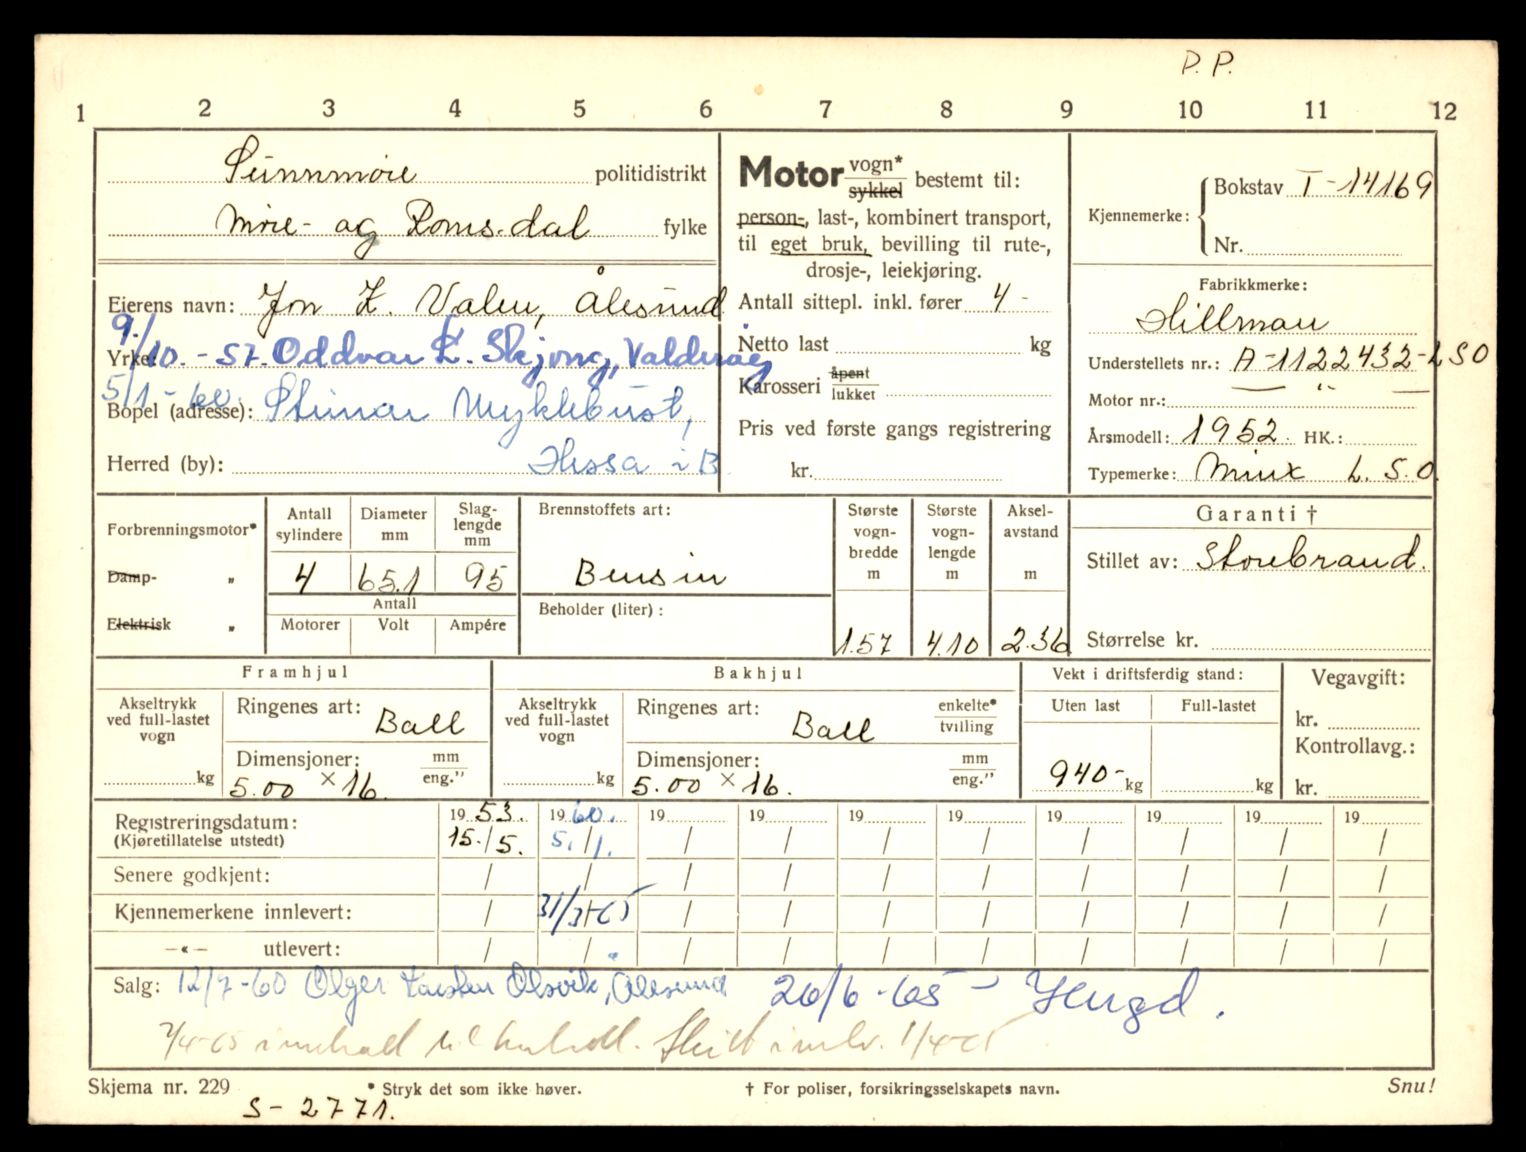 P. P.
1 2 3 4 5 6 7 8 9 10 11 12
Sunnmøre politidistrikt
Møre- og Romsdal fylke
Eierens navn: Jon K. Valen, Ålesund
9/10.-57. Oddvar L. Skjong, Valderøy
Yrke:
5/1-60. Steinar Myklebust,
Bopel (adresse):
Herred (by): Hessa i B
Motor vogn* sykkel bestemt til:
person-, last-, kombinert transport,
til eget bruk, bevilling til rute-,
drosje-, leiekjøring.
Antall sittepl. inkl. fører 4 -
Netto last kg
Karosseri åpent lukket
Pris ved første gangs registrering
kr.
Kjennemerke: Bokstav T-14169
Nr.
Fabrikkmerke:
Hillman
Understellets nr.: A-1122432-LSO
Motor nr.: — " —
Årsmodell: 1952. HK.:
Typemerke: Minx L. S. O.
Forbrenningsmotor*
Damp- „
Elektrisk „
Antall sylindere Diameter mm Slag-lengde mm
4 65.1 95
Antall
Motorer Volt Ampére
Brennstoffets art:
Bensin
Beholder (liter):
Største vogn-bredde m Største vogn-lengde m Aksel-avstand m
1.57 4.10 2.36
Garanti †
Stillet av: Storebrand.
Størrelse kr.
Framhjul
Akseltrykk ved full-lastet vogn kg
Ringenes art: Ball
Dimensjoner: mm eng."
5.00 × 16.
Bakhjul
Akseltrykk ved full-lastet vogn kg
Ringenes art: Ball enkelte* tvilling
Dimensjoner: mm eng."
5.00 × 16.
Vekt i driftsferdig stand:
Uten last Full-lastet
940- kg kg
Vegavgift:
kr.
Kontrollavg.:
kr.
Registreringsdatum: 19 53. 19 60. 19 19 19 19 19 19 19 19
(Kjøretillatelse utstedt) 15./5. 5./1. / / / / / / / /
Senere godkjent: / / / / / / / / / /
Kjennemerkene innlevert: / 31/3-65 / / / / / / / /
—«— utlevert: / / / / / / / / / /
Salg: 12/7-60 Olger Karsten Olsvik, Ålesund 26/6-65 -
7/4-65 til Skilt innlv. 1/4-65
Skjema nr. 229 * Stryk det som ikke høver. † For poliser, forsikringsselskapets navn. Snu!
S-2771.